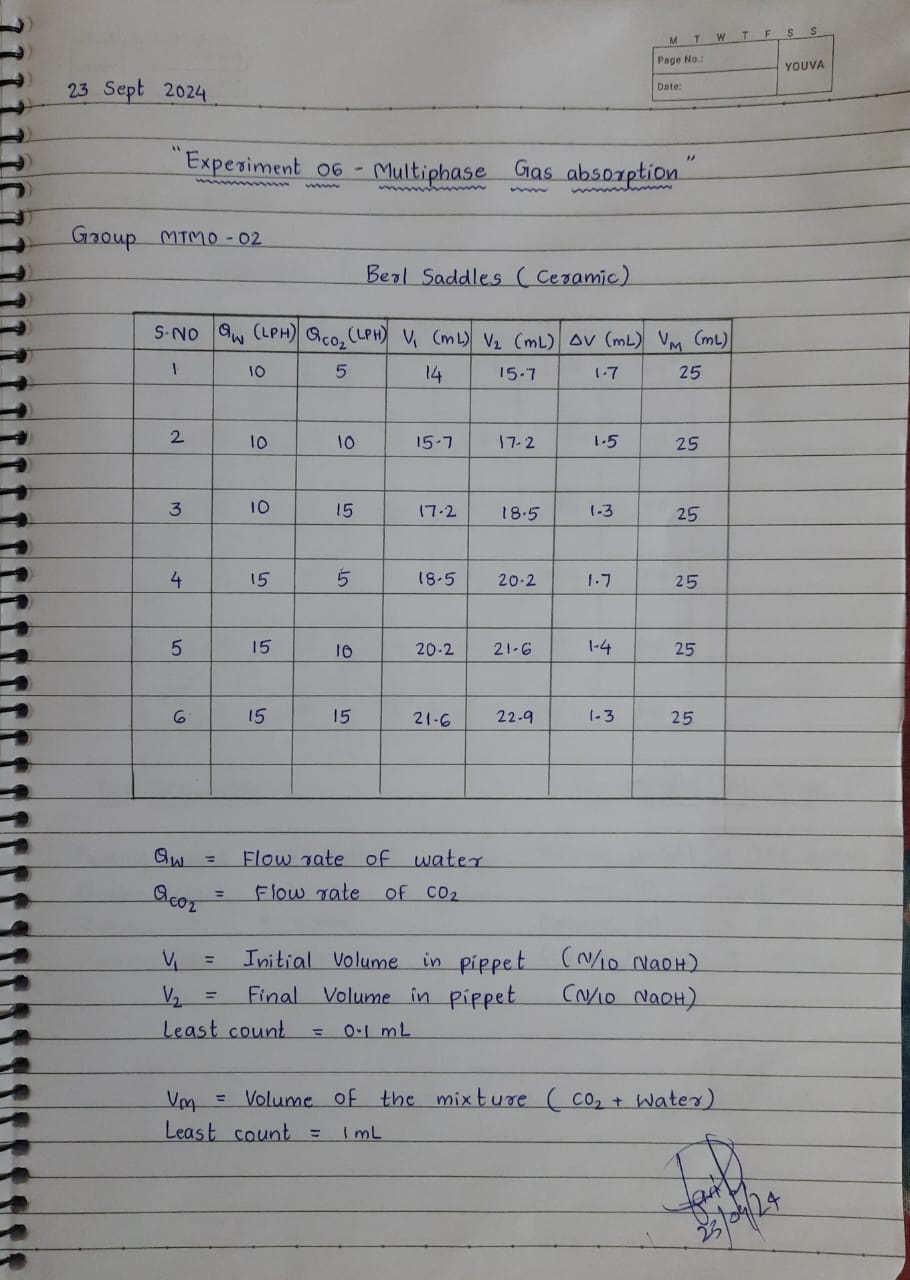 M T W T F S S
Page No.:
YOUVA
Date:
23 Sept 2024
"Experiment 06 - Multiphase Gas absorption"
Group MTMO-02
Berl Saddles (Ceramic)
S.NO Qw (LPH) QCO2 (LPH) V1 (mL) V2 (mL) ΔV (mL) VM (mL)
1 10 5 14 15.7 1.7 25
2 10 10 15.7 17.2 1.5 25
3 10 15 17.2 18.5 1.3 25
4 15 5 18.5 20.2 1.7 25
5 15 10 20.2 21.6 1.4 25
6 15 15 21.6 22.9 1.3 25
Qw = Flow rate of water
QCO2 = Flow rate of CO2
V1 = Initial Volume in pippet (N/10 NaOH)
V2 = Final Volume in pippet (N/10 NaOH)
Least count = 0.1 mL
Vm = Volume of the mixture (CO2 + Water)
Least count = 1 mL
23/09/24